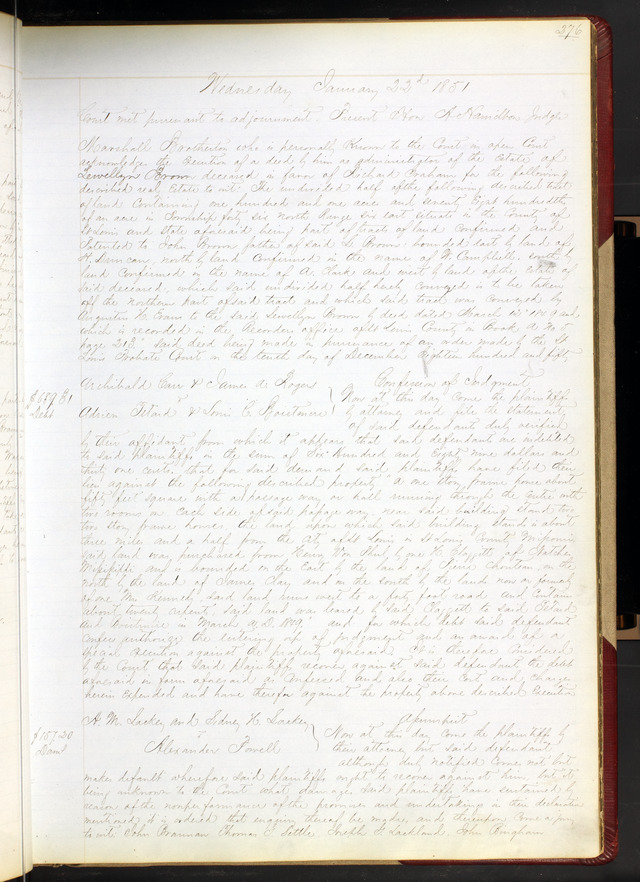 276
Wednesday January 22d 1851
Court met pursuant to adjournment. Present Hon A Hamilton Judge
Marshall Brotherton who is personally known to the Court in open Court
acknowledges the Execution of a deed by him as administrator of the Estate of
Lewellyn Brown deceased in favor of Richard Graham for the following
described real Estate to wit: The undivided half of the following described tract
of land Containing one hundred and one acres and seventy Eight hundredths
of an acre in Township forty six north Range six east situate in the County of
St Louis and State aforesaid being part of tracts of land confirmed and
Patented to John Brown father of said L. Brown bounded East by land of
H. Duncan, north by land Confirmed in the name of W. Campbell, south by
land Confirmed in the name of A. Clark and west by land of the Estate of
said deceased, which said undivided half hereby conveyed is to be taken
off the northern part of said tract and which said tract was Conveyed by
Augustin H. Evans to the said Lewellyn Brown by deed dated March 1849 and
which is recorded in the Recorders office of St Louis County in Book A No 5
page 212 said deed being made in pursuance of an order made by the St
Louis Probate Court on the tenth day of December Eighteen hundred and fifty,
Archibald Carr & James A Rogers Confession of Judgment
$689 31 Now at this day come the plaintiffs
Debt Adrien & Louis C. by attorney and file the statement
of said defendants duly verified
by their affidavit from which it appears that said defendants are indebted
to said plaintiffs in the sum of Six hundred and Eighty nine dollars and
thirty one cents, that for said demand said plaintiffs have filed their
lien against the following described property a one story frame house about
fifty feet square with a passage way or hall running through the centre with
two rooms on each side of said passage way, near said building stand two
two story frame houses, the land upon which said building stands is about
three miles and a half from the City of St Louis in St Louis County Missouri
said land was purchased from Henry Von Phul by one H. Claggett of Natchez
Mississippi and is bounded on the East by the land of Pierre Chouteau, on the
north by the land of James Clay and on the south by the lands now or formerly
of one Mr Kennedy, said land runs west to a forty foot road and contains
about twenty arpents, said land was leased by said Claggett to said
and in March A.D. 1849, and for which debt said defendant
authorize the entering up of judgment and an award of a
special execution against the property aforesaid. It is therefore Considered
by the Court that said plaintiffs recover against said defendants the debt
aforesaid in form aforesaid confessed and also their Cost and charges
herein Expended and have therefor against the property above described Execution
A. M. Lackey and Sidney H. Lackey Assumpsit
$157.20 Now at this day come the plaintiffs by
Dam Alexander Powell their attorney but said defendant
although duly notified comes not but
makes default wherefore said plaintiffs ought to recover against him, but it
being unknown to the Court what damage said plaintiffs have sustained by
reason of the nonperformance of the promises and undertakings in their declaration
mentioned, it is ordered that enquiry thereof be made, and thereupon come a jury
to wit John Brannan Thomas C. Settle Joseph H Lackland, John Bingham